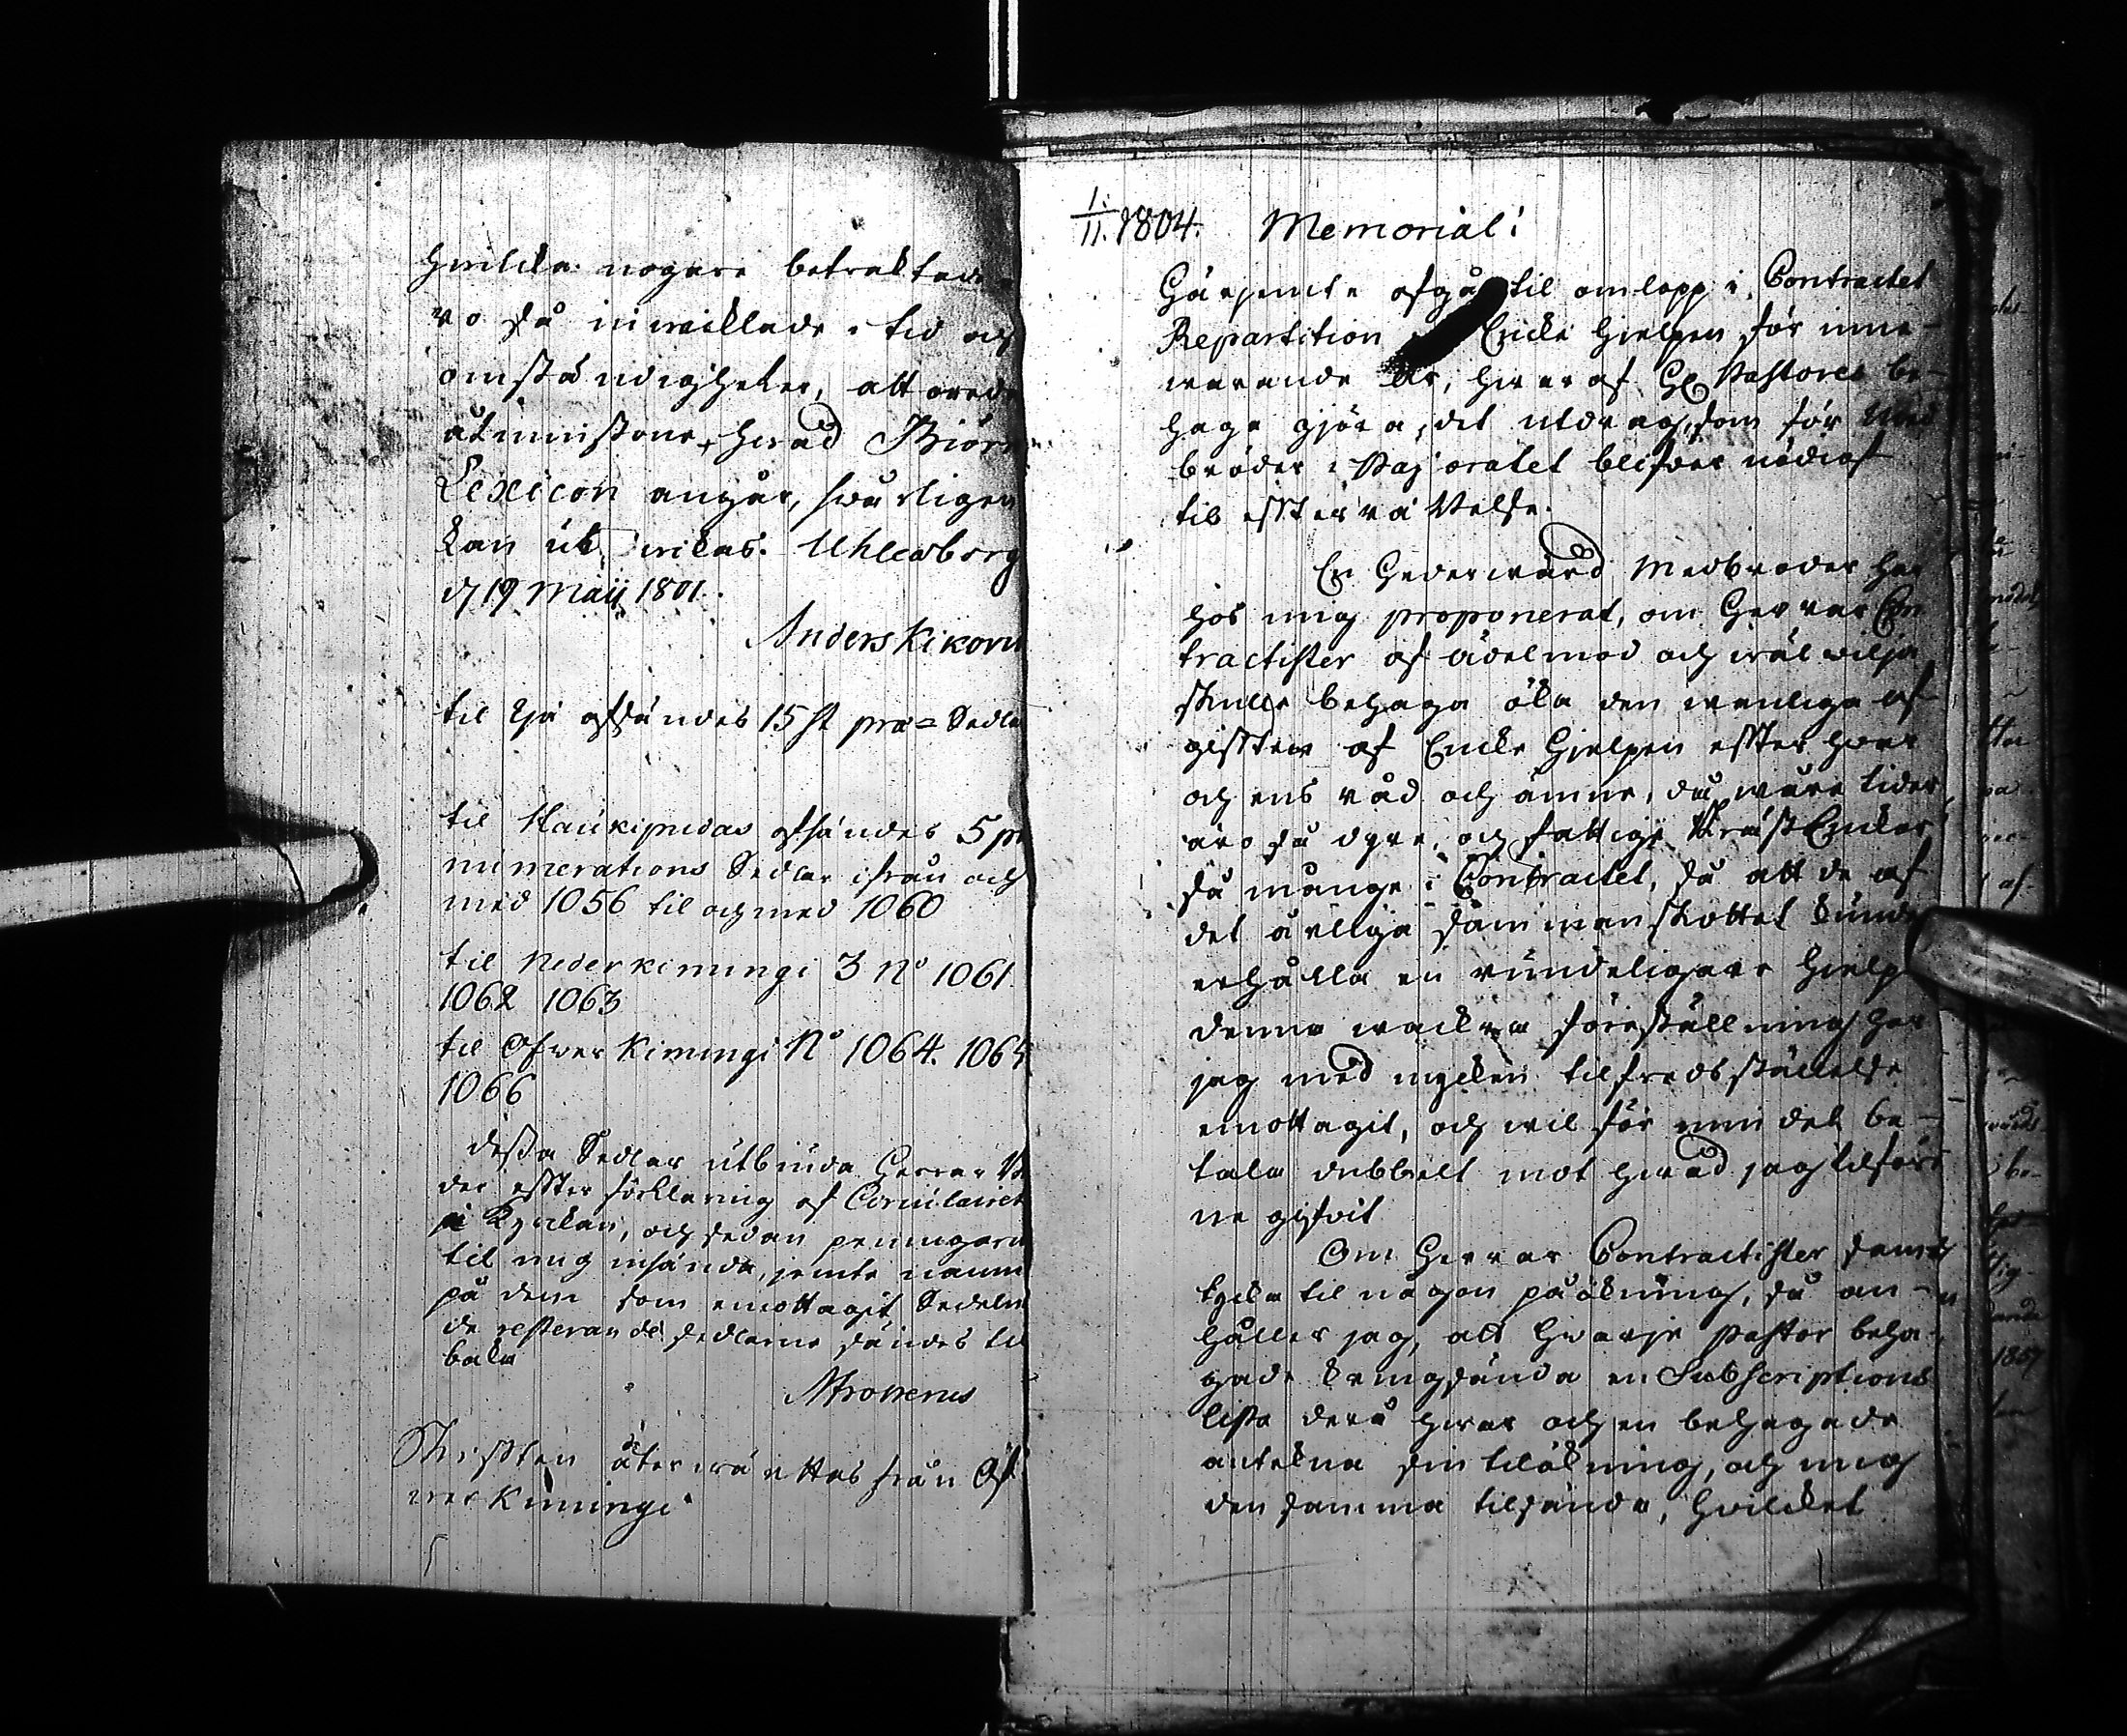 hwilka nogare betraktade
ro så inwicklade i tid och
omständigheter, att orede
åtminstone, hwad Biörn
Lexicon angår, swårligen
kan ut wikas. Uhleåborg
d 19 Maij 1801.
Anders Hikorn
til Ijå afsändes 15 st præ= Sedla
til Haukipudas afsändes 5 pr
numerations Sedlar ifrån och
med 1056 til och med 1060
til Nederkimingi 3 No 1061.
1062 1063
til Ofwer Kimingi No 1064. 1065
1066
dessa Sedlar utbiuda Herrar
der effter förklaring af Circulairet
i Kyrkan, och sedan penningarne
til mig insända, jemte namn
på dem som emottagit Sedeln
de resterande sedlarne sändes til
baka
Skriften återwäntas från Öf
wer Kimingi
1/11. 1804. Memorial!
Härjemte afgår til omlopp i Contractet
Repartition Encke Hielpen för inne-
warande År, hwaraf HH Pastores be-
haga gjöra, det utdrag, som för Med
bröder i Pastoratet blifwer nödigt
til effterrättelse.
En Hederwärd Medbroder har
hos mig proponerat, om Herrar Con
tractister af ädelmod och wälwilja
skulle behaga öka den wanliga af
gifften af Encke Hjelpen effter hwar
och ens råd och ämne, då wåre tider
äro så dyra, och fattige PrästEnckor
så månge i Contractet, så att de af
det årliga sammanskottet kunde
erhålla en rundeligare hielp
denna wackra föreställning har
jag med mycken tilfredsställelse
emottagit, och wil för min del be-
tala dubbelt mot hwad jag tilföre
ne gifwit
Om Herrar Contractister samt
tycka til någon påökning, så an-
håller jag, att hwarje Pastor beha-
gade kringsända en Subscriptions
lista derå hwar och en behagade
antekna sin tilökning, och mig
den samma tilsända, hwilcket